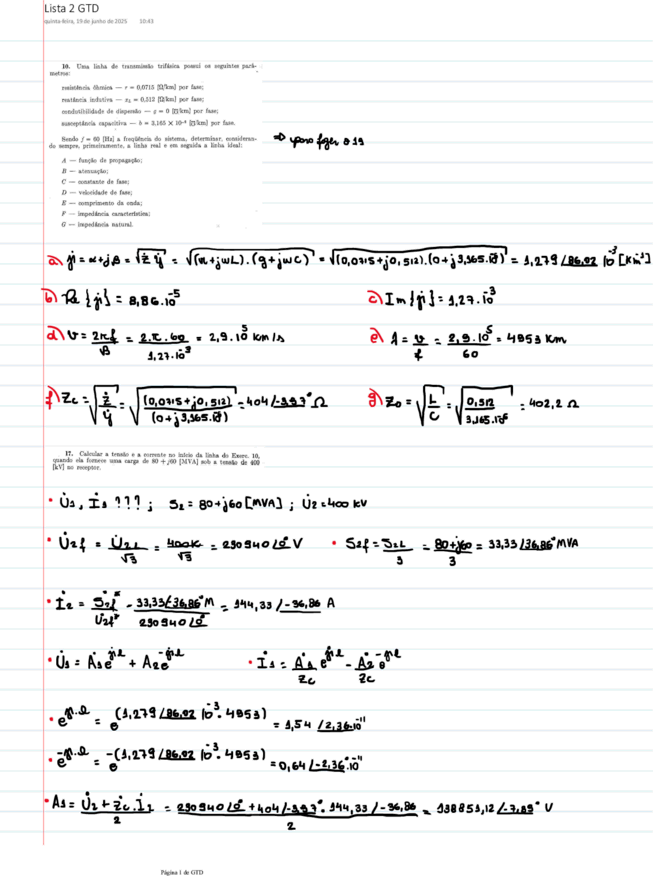 Lista 2 GTD
quinta-feira, 19 de junho de 2025 10:43
10. Uma linha de transmissão trifásica possui os seguintes parâ-
metros:
resistência ôhmica — r = 0,0715 [Ω/km] por fase;
reatância indutiva — x_L = 0,512 [Ω/km] por fase;
condutibilidade de dispersão — g = 0 [℧/km] por fase;
susceptância capacitiva — b = 3,165 × 10⁻⁶ [℧/km] por fase.
Sendo f = 60 [Hz] a freqüência do sistema, determinar, consideran-
do sempre, primeiramente, a linha real e em seguida a linha ideal:
⇒ para fazer o 19
A — função de propagação;
B — atenuação;
C — constante de fase;
D — velocidade de fase;
E — comprimento da onda;
F — impedância característica;
G — impedância natural.
a) γ̇ = α+jβ = √(ż ẏ) = √((r+jωL).(g+jωC)) = √((0,0715+j0,512).(0+j3,165.10⁻⁶)) = 1,279 /86,02 10⁻³ [km⁻¹]
b) Re {γ̇} = 8,86.10⁻⁵ c) Im {γ̇} = 1,27.10⁻³
d) v = 2πf/β = 2.π.60/1,27.10⁻³ = 2,9.10⁵ km/s e) λ = v/f = 2,9.10⁵/60 = 4953 Km
f) Zc = √(ż/ẏ) = √((0,0715+j0,512)/(0+j3,165.10⁻⁶)) = 404/-3,97° Ω g) Z₀ = √(L/C) = √(0,512/3,165.10⁻⁶) = 402,2 Ω
17. Calcular a tensão e a corrente no início da linha do Exerc. 10,
quando ela fornece uma carga de 80 + j60 [MVA] sob a tensão de 400
[kV] no receptor.
• U̇₁, İ₁ ??? ; S₂ = 80+j60[MVA] ; U̇₂ = 400 kV
• U̇₂f = U̇₂L/√3 = 400K/√3 = 230940 /0° V • S₂f = S₂L/3 = 80+j60/3 = 33,33 /36,86° MVA
• İ₂ = Ṡ₂f*/U̇₂f* = 33,33/-36,86° M/230940 /0° = 144,33 /-36,86 A
• U̇₁ = A₁e^γ̇l + A₂e^-γ̇l • İ₁ = A₁/Zc e^γ̇l - A₂/Zc e^-γ̇l
• e^γ̇.l = e^(1,279 /86,02 10⁻³. 4953) = 1,54 /2,36.10⁻¹¹
• e^-γ̇.l = e^-(1,279 /86,02 10⁻³. 4953) = 0,64 /-2,36.10⁻¹¹
• A₁ = U̇₂ + Żc . İ₂/2 = 230940 /0° + 404 /-3,97° . 144,33 /-36,86/2 = 138851,12 /-7,89° V
Página 1 de GTD